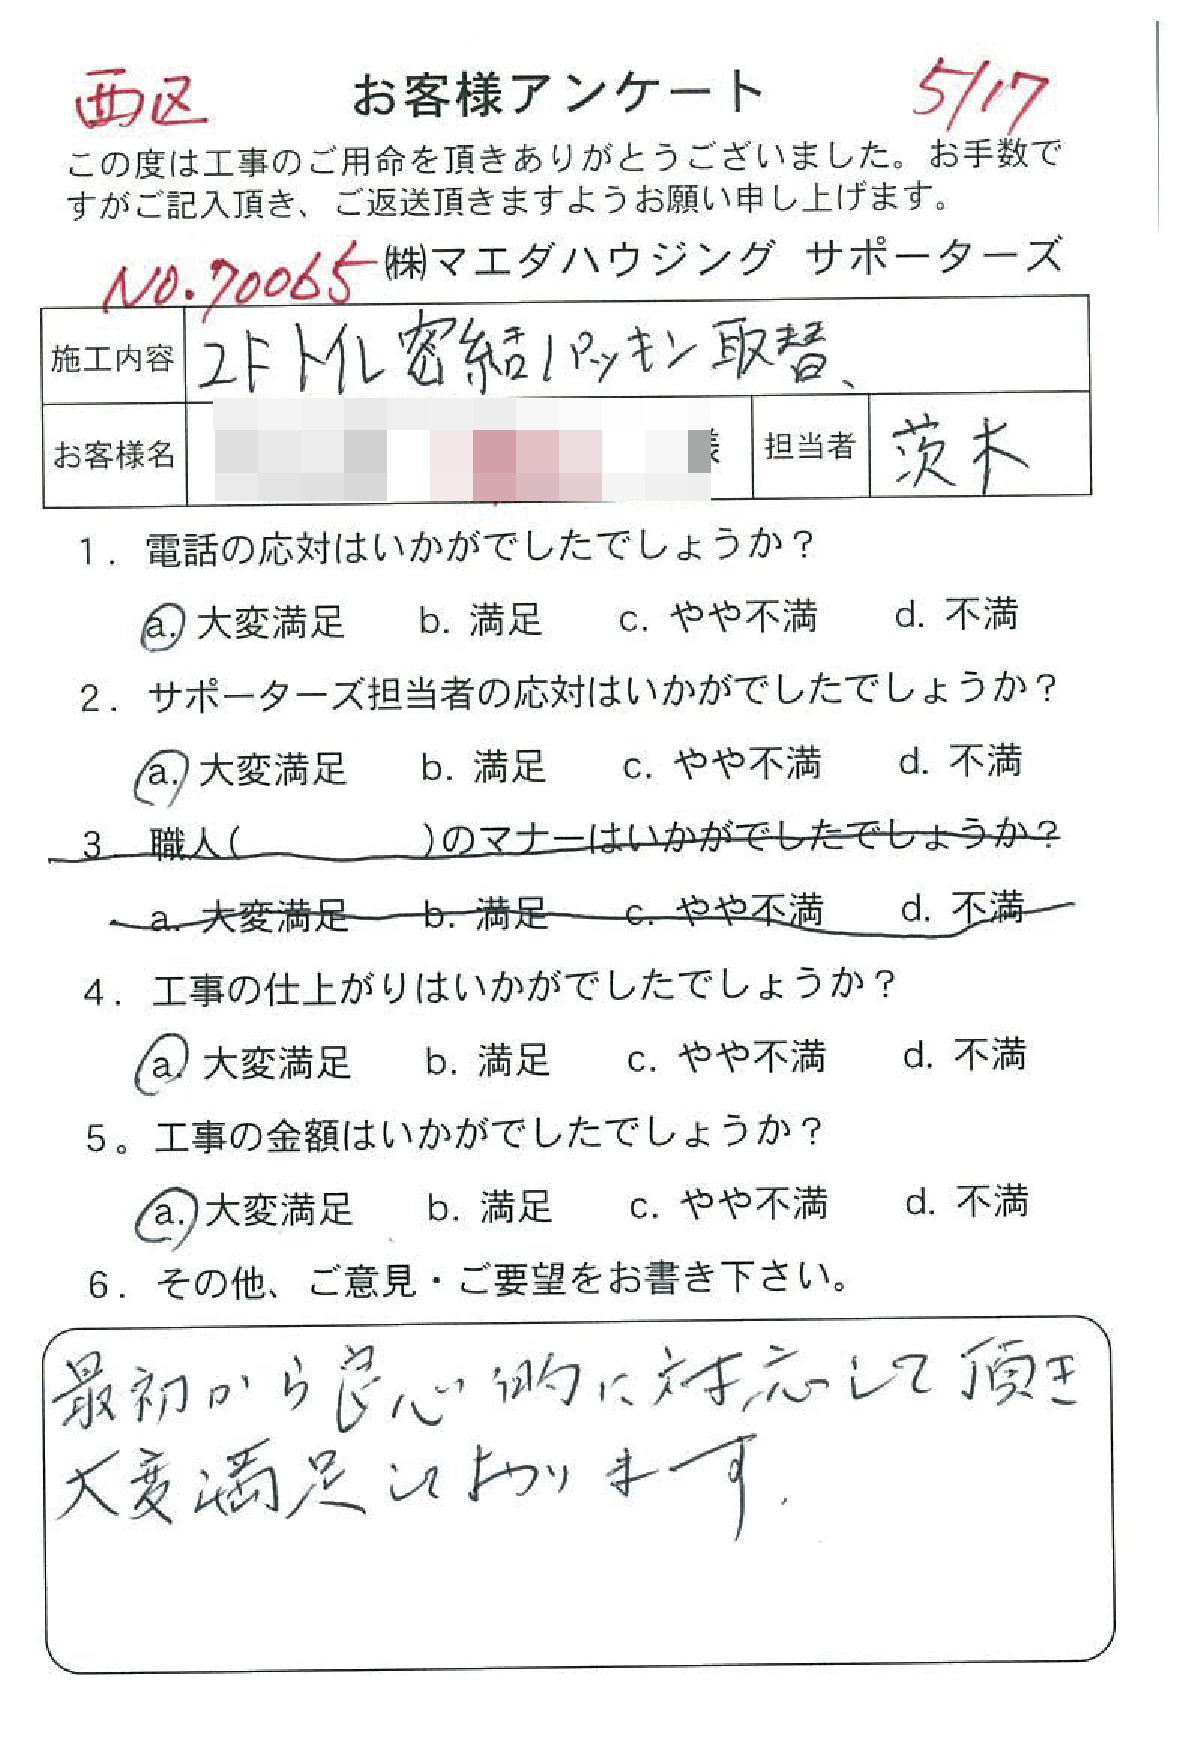 西区 お客様アンケート 5/17
この度は工事のご用命を頂きありがとうございました。お手数で
すがご記入頂き、ご返送頂きますようお願い申し上げます。
NO.70065 ㈱マエダハウジング サポーターズ
施工内容 2Fトイレ密結パッキン取替、
お客様名 様 担当者 茨木
1. 電話の応対はいかがでしたでしょうか？
a. 大変満足 b. 満足 c. やや不満 d. 不満
2. サポーターズ担当者の応対はいかがでしたでしょうか？
a. 大変満足 b. 満足 c. やや不満 d. 不満
3. 職人( )のマナーはいかがでしたでしょうか？
a. 大変満足 b. 満足 c. やや不満 d. 不満
4. 工事の仕上がりはいかがでしたでしょうか？
a. 大変満足 b. 満足 c. やや不満 d. 不満
5。工事の金額はいかがでしたでしょうか？
a. 大変満足 b. 満足 c. やや不満 d. 不満
6. その他、ご意見・ご要望をお書き下さい。
最初から良心的に対応して頂き
大変満足しております.